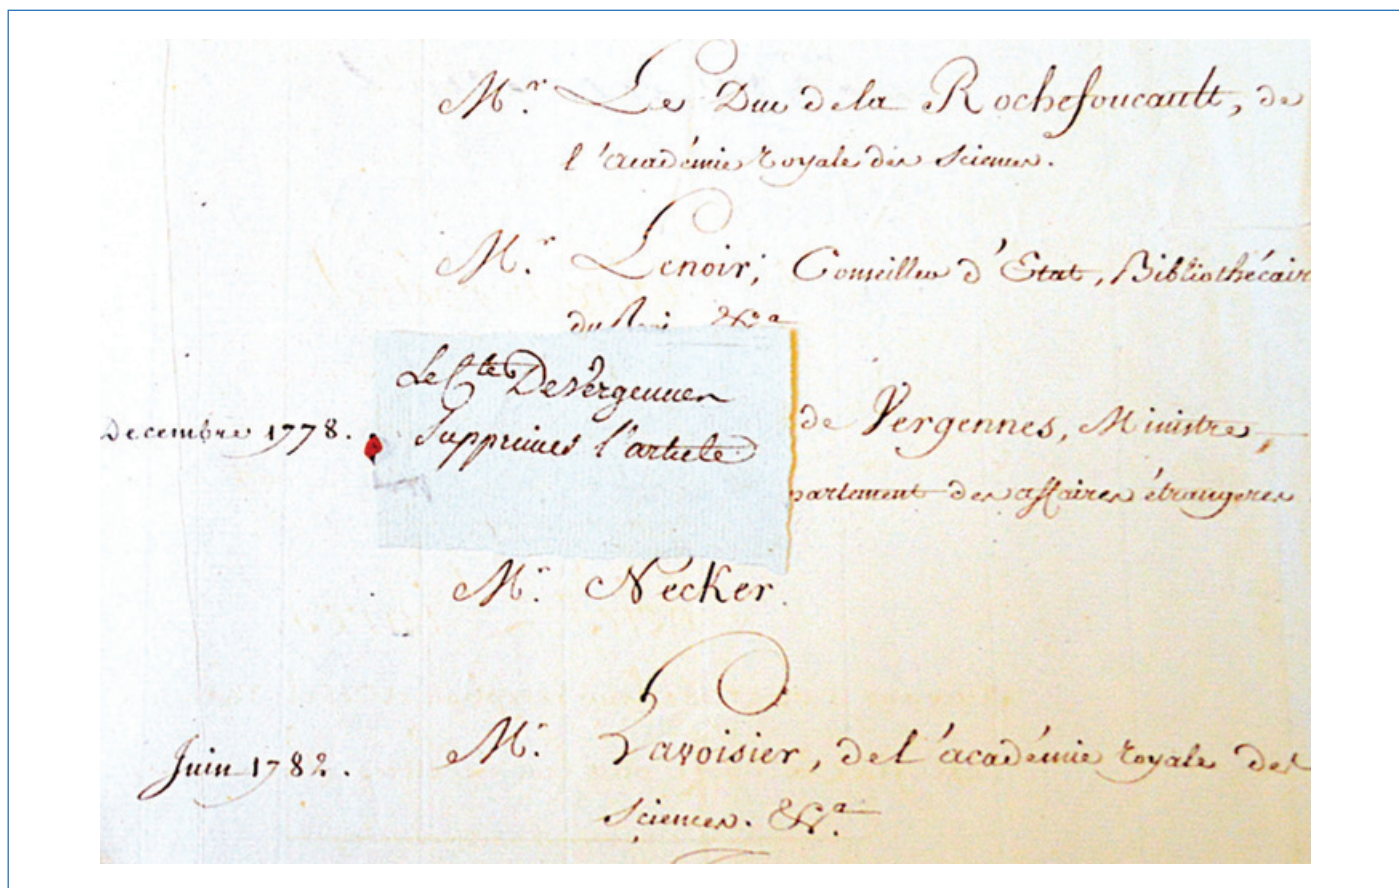 Mr. Le Duc de la Rochefoucault, de
l'académie royale des Sciences.
Mr. Lenoir, Conseiller d'Etat, Bibliothécair
du Roi &ca
Le Cte De Vergennes
Supprimés l'article
Decembre 1778.
de Vergennes, Ministre,
partement des affaires étrangeres
Mr. Necker.
Juin 1782. Mr. Lavoisier, de l'académie royale des
Sciences. &ca